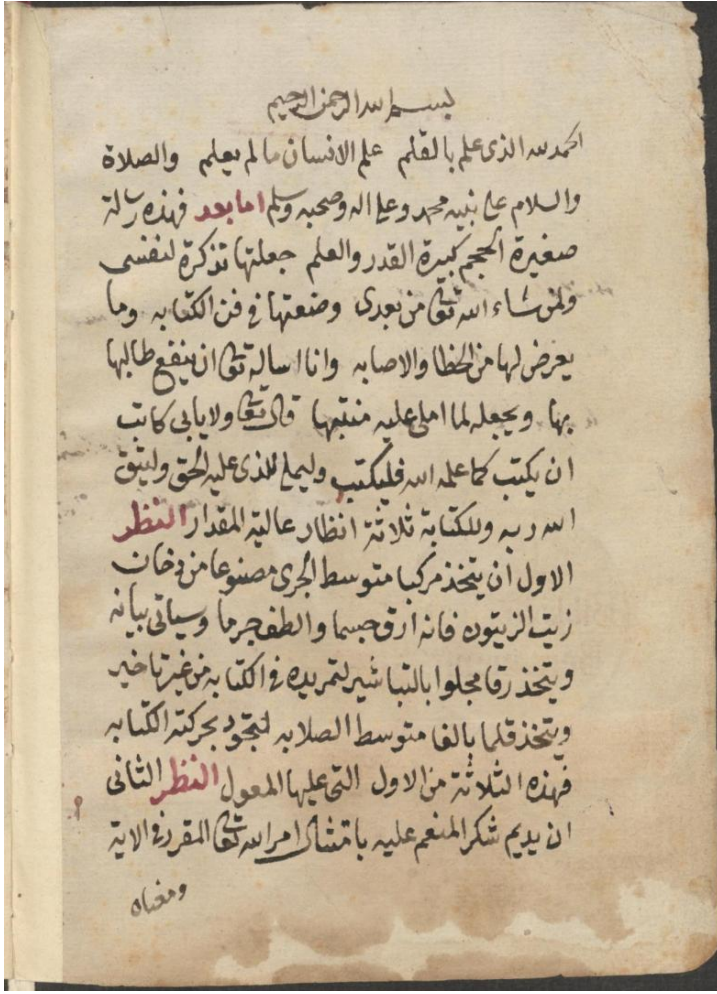 بسم الله الرحمن الرحيم
الحمد لله الذي علم بالقلم علم الانسان ما لم يعلم والصلاة
والسلام على نبيه محمد وعلى اله وصحبه وسلم اما بعد فهذه رسالة
صغيرة الحجم كبيرة القدر والعلم جعلتها تذكرة لنفسي
ولمن شاء الله تعا من بعدى وضعتها في فن الكتابه وما
يعرض لها من الخطا والاصابه وانا اساله تعا ان ينفع طالبها
بها ويجعله لما املى عليه منتبها قال تعا ولا يابى كاتب
ان يكتب كما علمه الله فليكتب وليملل الذى عليه الحق وليتق
الله ربه وللكتابة ثلاثة انظار عالية المقدار النظر
الاول ان يتخذ مركبا متوسط الجرى مصنوعا من دخان
زيت الزيتون فانه ارق جسما والطف جرما وسياتى بيانه
ويتخذ رقا مجلوا بالتباشير لتمريده في الكتابه من غير تاخير
ويتخذ قلما بالغا متوسط الصلابه لتجود بحركته الكتابه
فهذه الثلاثة من الاول التى عليها المعول النظر الثانى
ان يديم شكر المنعم عليه بامتثال امر الله تعا المقرر في الاية
ومعناه